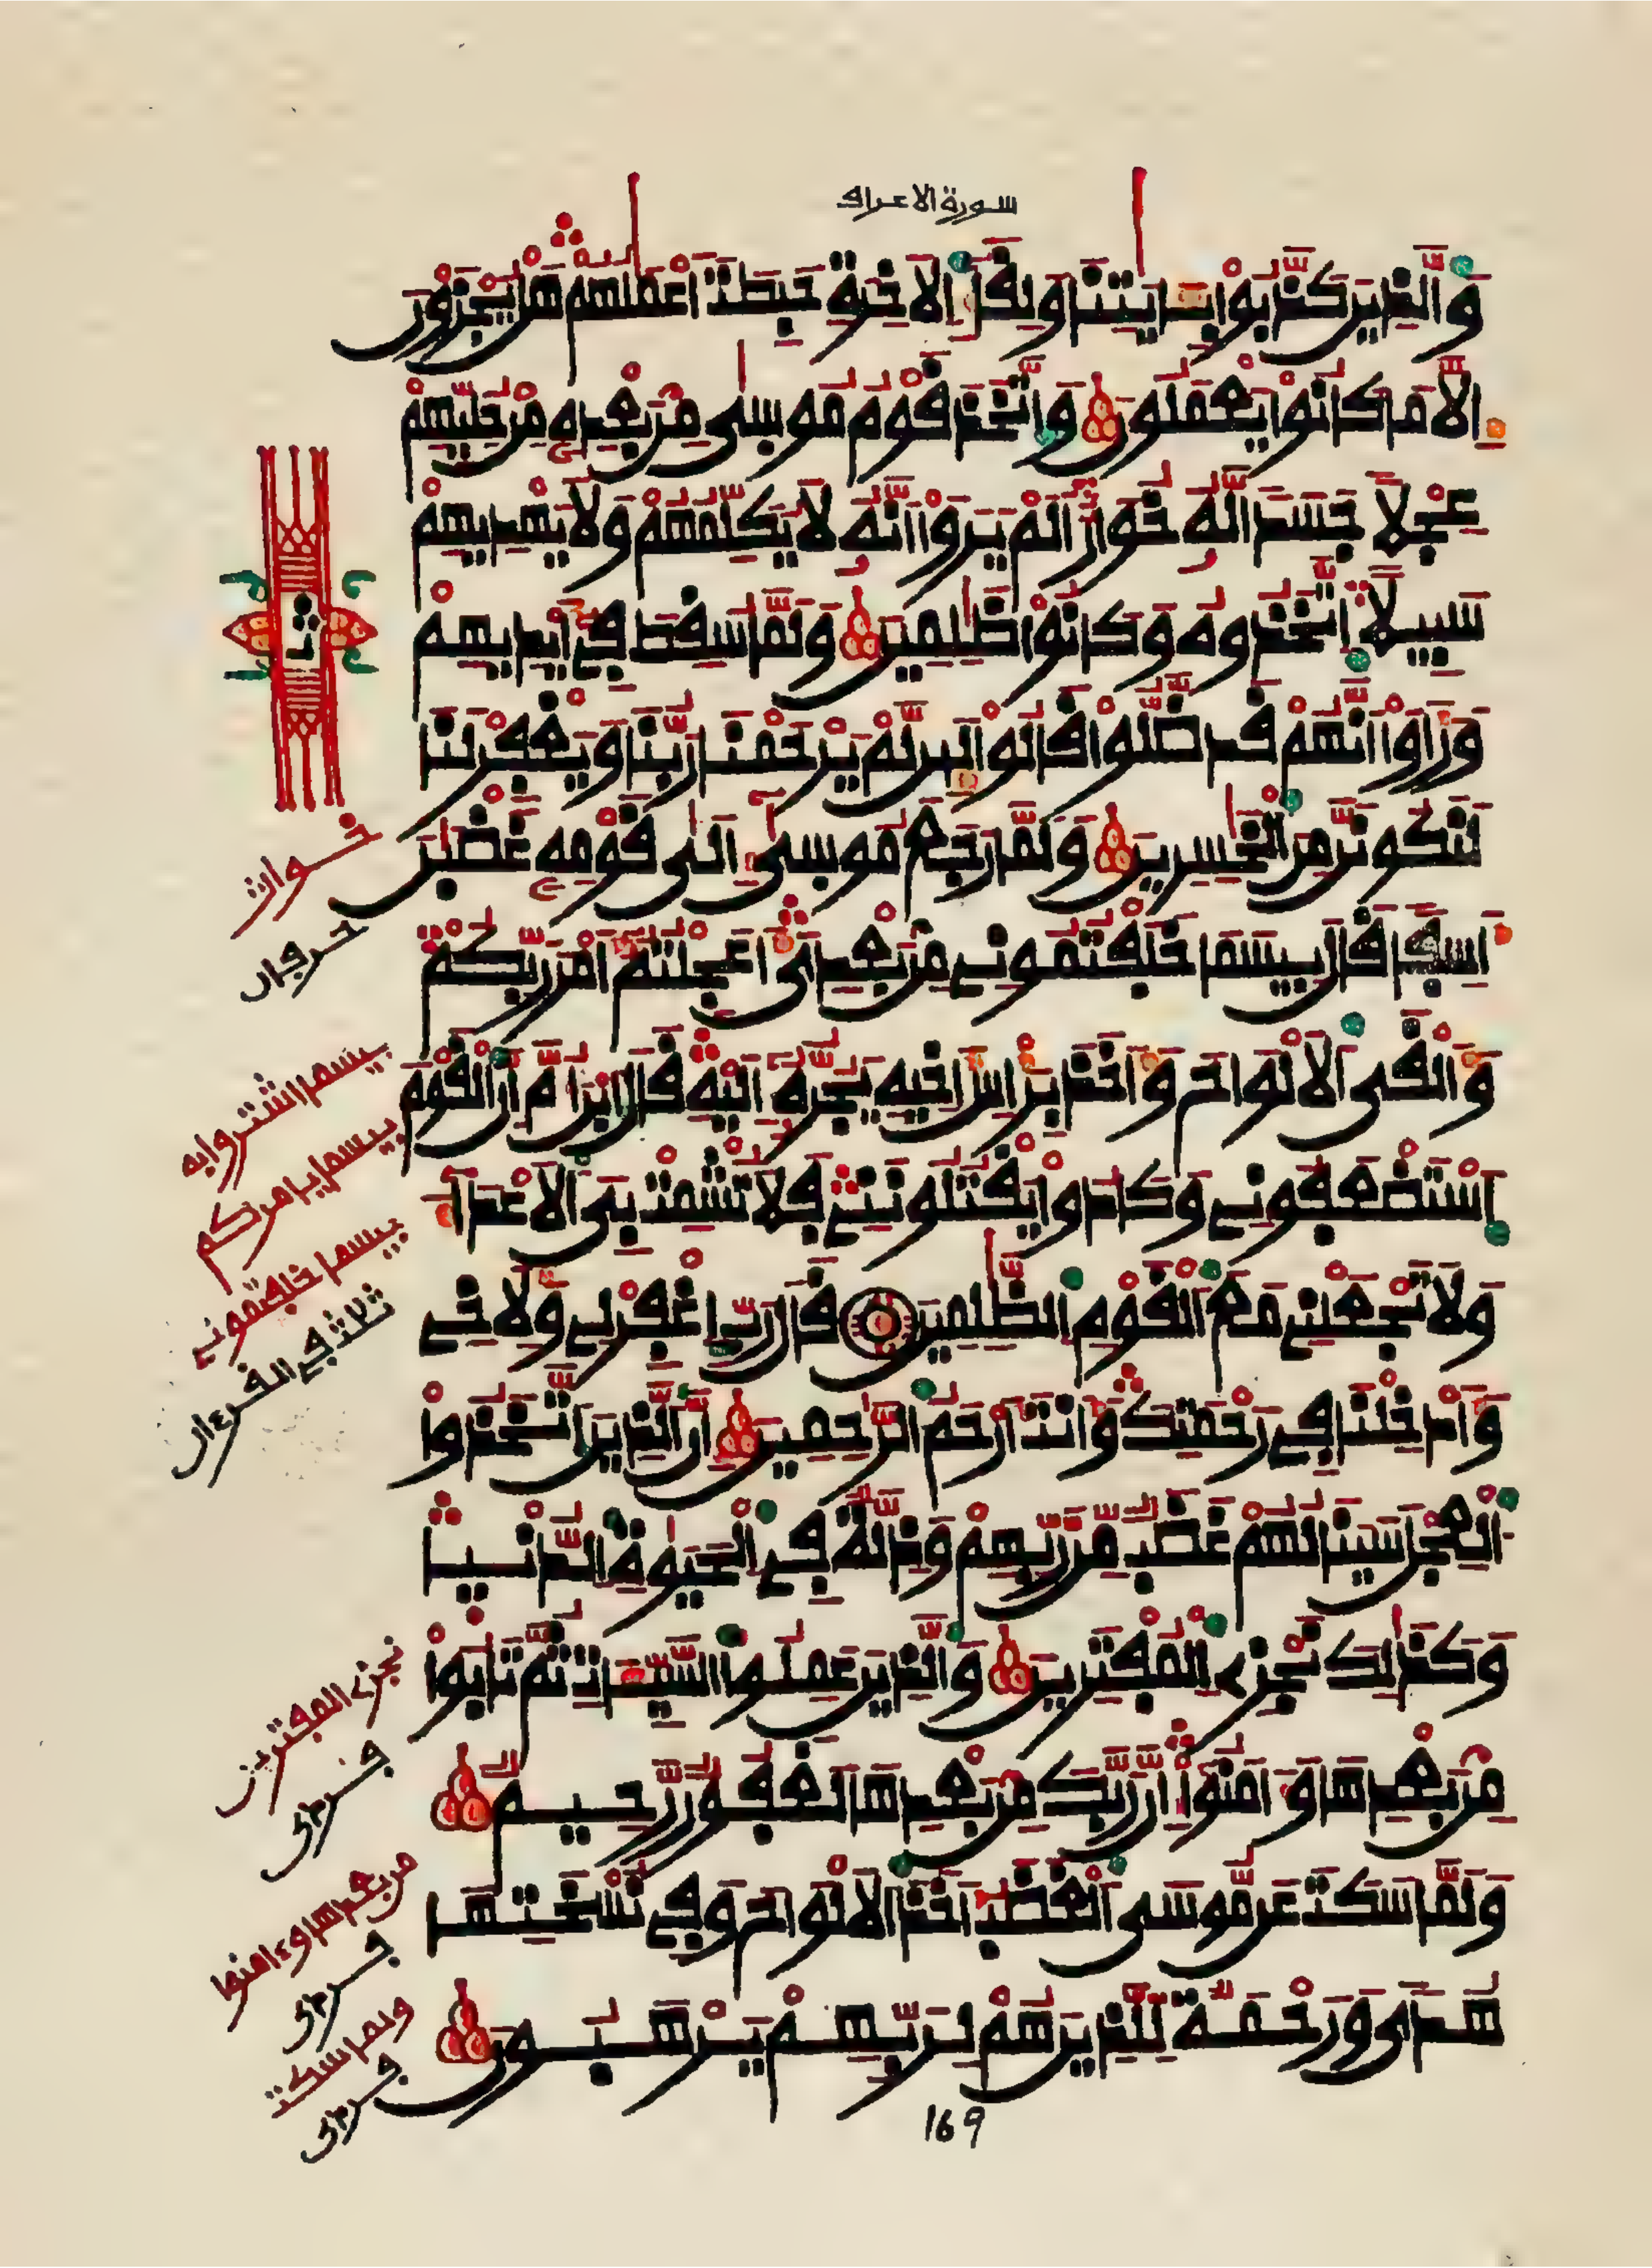 سورة الاعراف
والذين كذبوا بـايتنا ولقا الاخرة حبطت اعملهم هل يجزون
الا ما كانوا يعملون واتخذ قوم موسى من بعده من حليهم
عجلا جسدا له خوار الم يروا انه لا يكلمهم ولا يهديهم
سبيلا اتخذوه وكانوا ظلمين ولما سقط في ايديهم
وراوا انهم قد ضلوا قالوا لين لم يرحمنا ربنا ويغفر لنا
لنكونن من الخسرين ولما رجع موسى الى قومه غضبن
اسفا قال بيسما خلفتموني من بعدي اعجلتم امر ربكم
والقى الالواح واخذ براس اخيه يجره اليه قال ابن ام ان القوم
استضعفوني وكادوا يقتلونني فلا تشمت بي الاعدا
ولا تجعلني مع القوم الظلمين قال رب اغفر لي ولاخي
وادخلنا في رحمتك وانت ارحم الرحمين ان الذين اتخذوا
العجل سينالهم غضب من ربهم وذلة في الحيوة الدنيا
وكذلك نجزي المفترين والذين عملوا السيـات ثم تابوا
من بعدها وامنوا ان ربك من بعدها لغفور رحيم
ولما سكت عن موسى الغضب اخذ الالواح وفي نسختها
هدى ورحمة للذين هم لربهم يرهبون
خوار
حرفان
بيسما اشتروا به
بيسما يامركم
بيسما خلفتموني
ثلاث في القرءان
نجزي المفترين
فردى
من بعدها وءامنوا
فردى
ولما سكت
فردى
169